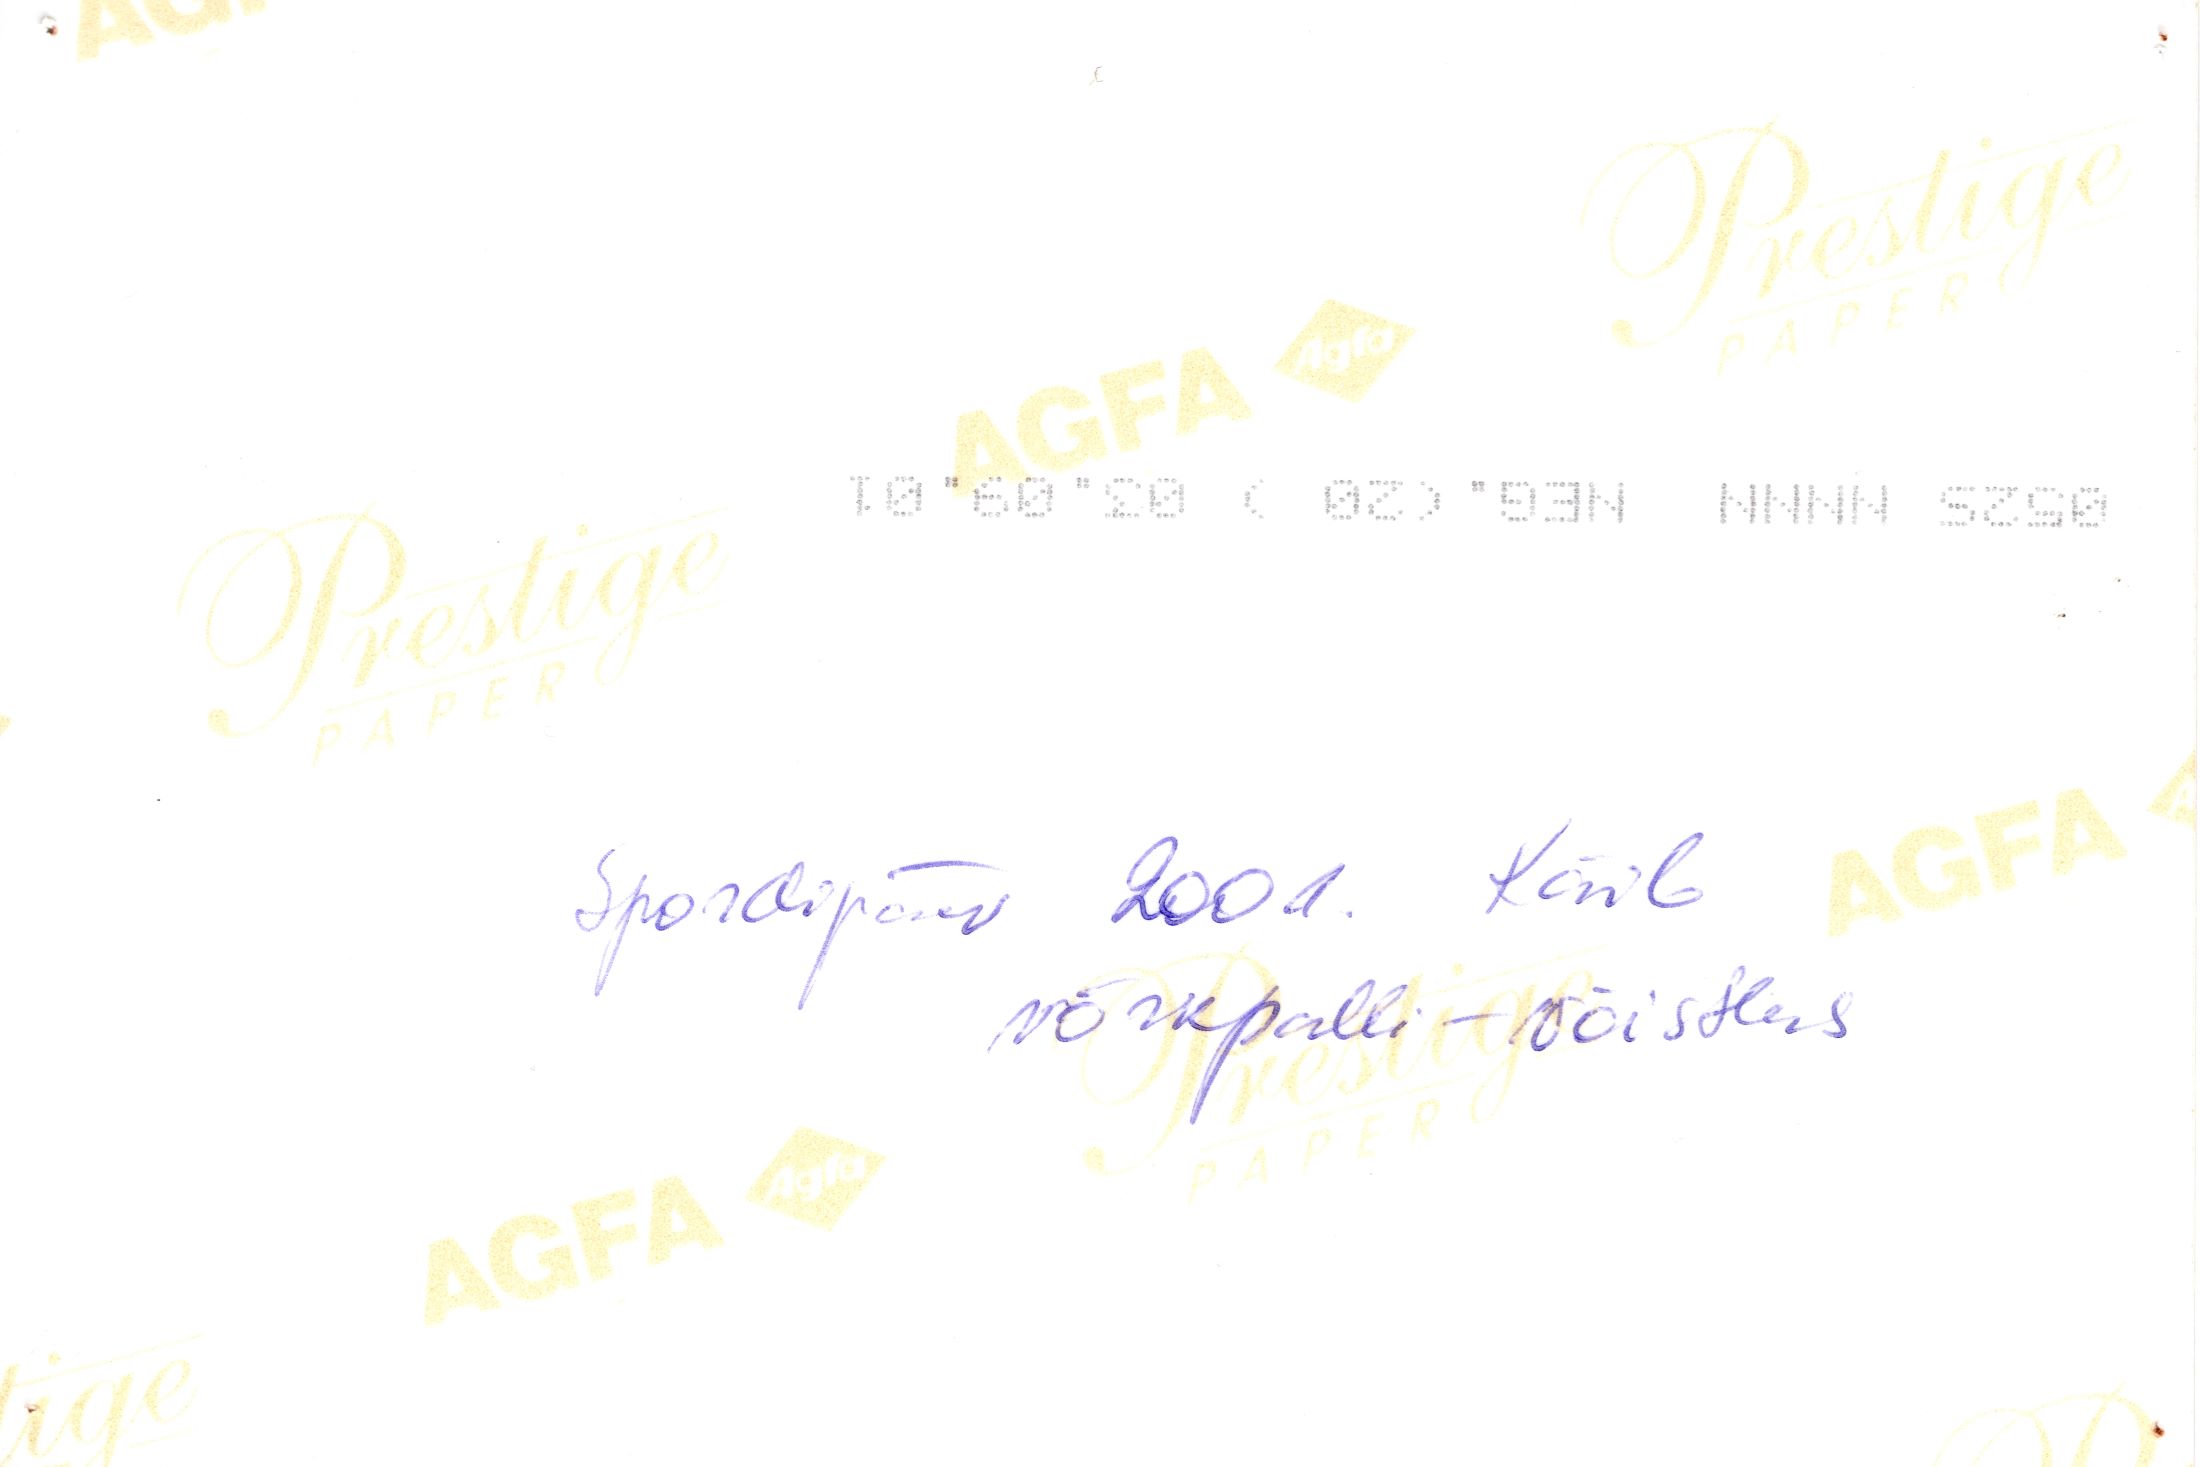 AGFA
Prestige
PAPER
AGFA Agfa
Prestige
PAPER
Spordipäev 2001. Käib
võrkpalli-võistlus
AGFA
Prestige
PAPER
AGFA Agfa
tige